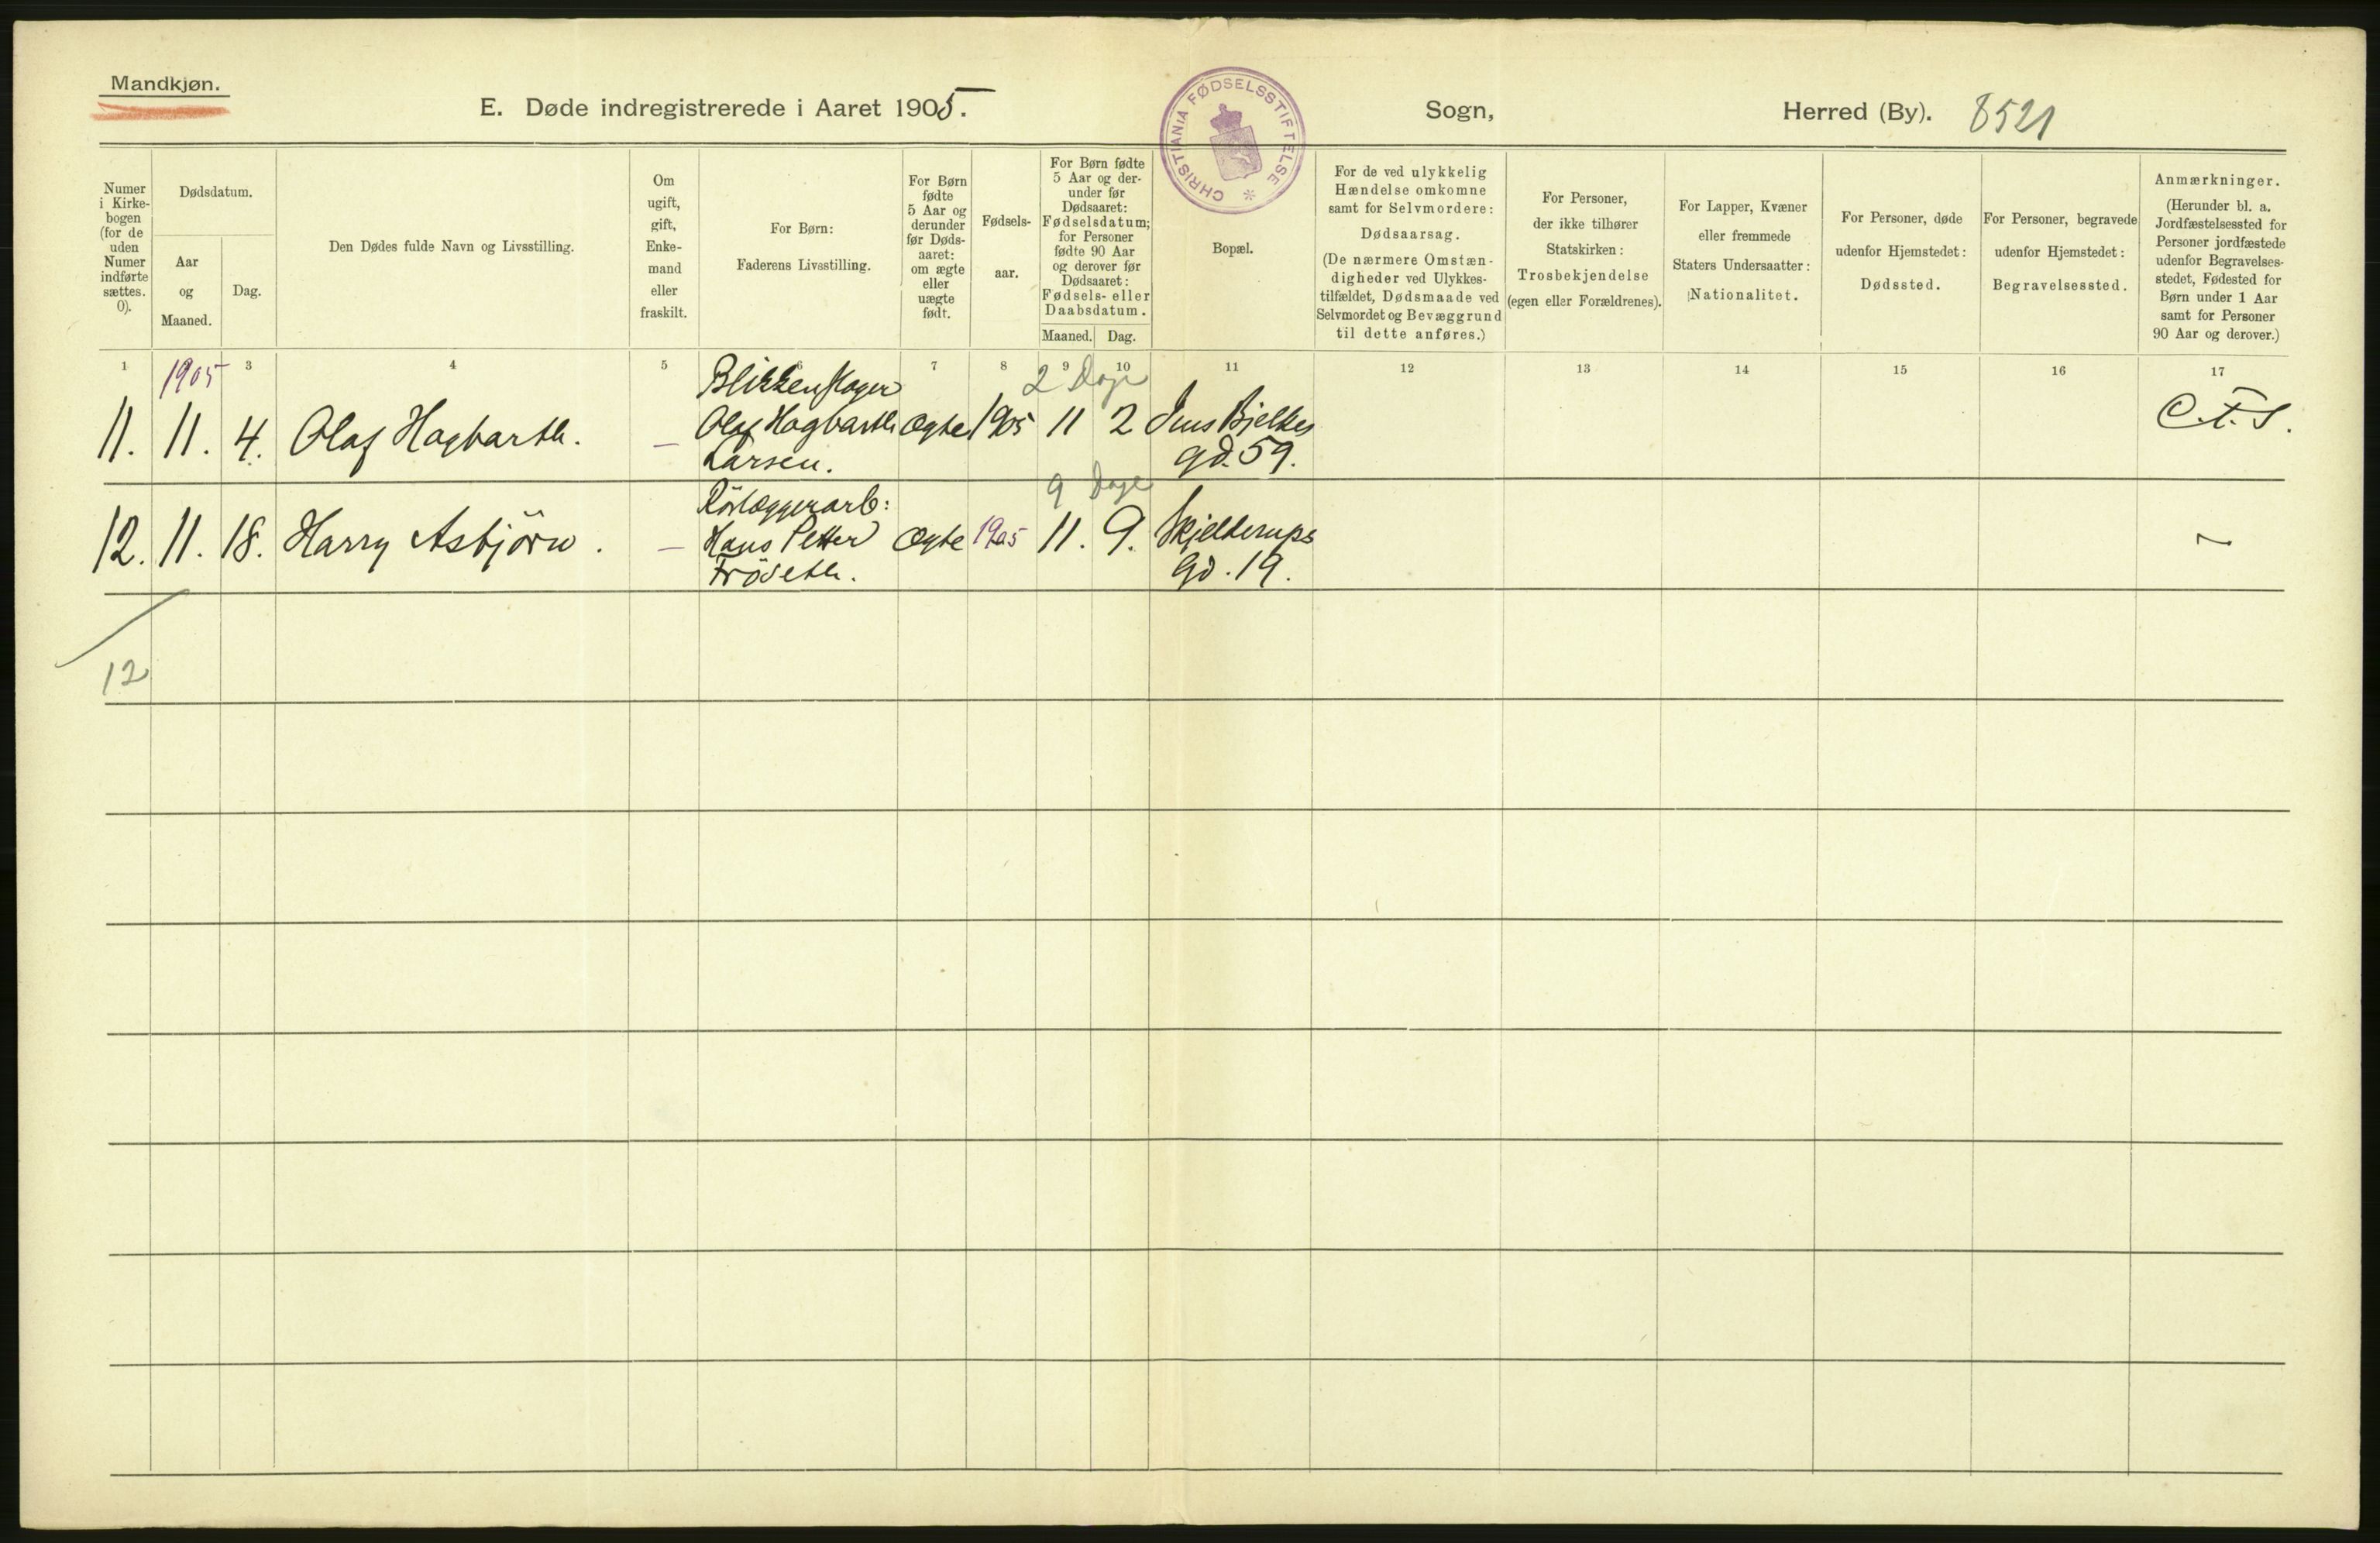 Mandkjøn.
E. Døde indregistrerede i Aaret 1905.
CHRISTIANIA FØDSELSSTIFTELSE *
Sogn,
Herred (By). 8521
Numer
i Kirke-
bogen
(for de
uden
Numer
indførte
sættes.
0).
Dødsdatum.
Aar
og
Maaned.
Dag.
Den Dødes fulde Navn og Livsstilling.
Om
ugift,
gift,
Enke-
mand
eller
fraskilt.
For Børn:
Faderens Livsstilling.
For Børn
fødte
5 Aar og
derunder
før Døds-
aaret:
om ægte
eller
uægte
født.
Fødsels-
aar.
For Børn fødte
5 Aar og der-
under før
Dødsaaret:
Fødselsdatum;
for Personer
fødte 90 Aar
og derover før
Dødsaaret:
Fødsels- eller
Daabsdatum.
Maaned. Dag.
Bopæl.
For de ved ulykkelig
Hændelse omkomne
samt for Selvmordere:
Dødsaarsag.
(De nærmere Omstæn-
digheder ved Ulykkes-
tilfældet, Dødsmaade ved
Selvmordet og Bevæggrund
til dette anføres.)
For Personer,
der ikke tilhører
Statskirken:
Trosbekjendelse
(egen eller Forældrenes).
For Lapper, Kvæner
eller fremmede
Staters Undersaatter:
Nationalitet.
For Personer, døde
udenfor Hjemstedet:
Dødssted.
For Personer, begravede
udenfor Hjemstedet:
Begravelsessted.
Anmærkninger.
(Herunder bl. a.
Jordfæstelsessted for
Personer jordfæstede
udenfor Begravelses-
stedet, Fødested for
Børn under 1 Aar
samt for Personer
90 Aar og derover.)
1 3 4 5 6 7 8 9 10 11 12 13 14 15 16 17
1905 Blikkenslager 2 Dage
11. 11. 4. Olaf Hagbarth. — Olaf Hagbarth Ægte 1905 11 2 Jens Bjelkes C.F.S.
Larsen. gd. 59.
Rörlæggerarb: 9 Dage
12. 11. 18. Harry Asbjörn. — Hans Petter Ægte 1905 11. 9. Skjelderups ~
Fröseth. Gd. 19.
12